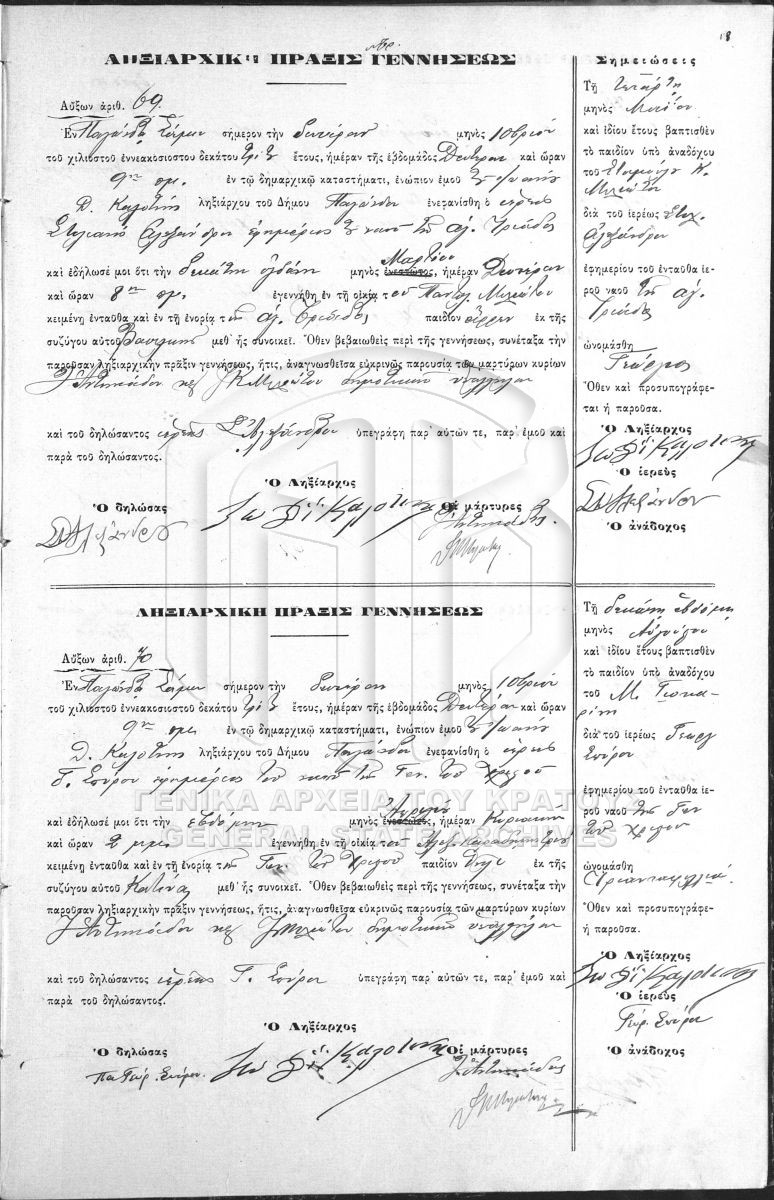 18
ΛΗΞΙΑΡΧΙΚΗ ΠΡΑΞΙΣ ΓΕΝΝΗΣΕΩΣ
Αὔξων ἀριθ. 69
Ἐν Παγώνδᾳ Σάμου σήμερον τὴν Δευτέραν μηνὸς 10βρίου
τοῦ χιλιοστοῦ ἐννεακοσιοστοῦ δεκάτου ἔτους, ἡμέραν τῆς ἑβδομάδος Δευτέραν καὶ ὥραν
9ην πμ. ἐν τῷ δημαρχικῷ καταστήματι, ἐνώπιον ἐμοῦ
Δ. Καλοτίνη ληξιάρχου τοῦ Δήμου Παγώνδα ἐνεφανίσθη ὁ ἱερεὺς
Στυλιανὸς Ἀλεξάνδρου ἐφημέριος τοῦ ναοῦ τῆς Ἁγ. Τριάδος
Μαρτίου
καὶ ἐδήλωσέ μοι ὅτι τὴν δεκάτην ὀγδόην μηνὸς ἐνεστῶτος, ἡμέραν Δευτέραν
καὶ ὥραν 8ην πμ. ἐγεννήθη ἐν τῇ οἰκίᾳ τοῦ Παντελ.
κειμένῃ ἐνταῦθα καὶ ἐν τῇ ἐνορίᾳ τῆς Ἁγ. Τριάδος παιδίον ἄρρεν ἐκ τῆς
συζύγου αὐτοῦ μεθ᾽ ἧς συνοικεῖ. Ὅθεν βεβαιωθεὶς περὶ τῆς γεννήσεως, συνέταξα τὴν
παροῦσαν ληξιαρχικὴν πρᾶξιν γεννήσεως, ἥτις, ἀναγνωσθεῖσα εὐκρινῶς παρουσίᾳ τῶν μαρτύρων κυρίων
δημοτικῶν ὑπαλλήλων
καὶ τοῦ δηλώσαντος ἱερέως Σ. Ἀλεξάνδρου ὑπεγράφη παρ᾽ αὐτῶν τε, παρ᾽ ἐμοῦ καὶ
παρὰ τοῦ δηλώσαντος.
Ὁ Ληξίαρχος
Ὁ δηλώσας Οἱ μάρτυρες
Σ. Ἀλεξάνδρου
Σημειώσεις
Τῇ τετάρτῃ
μηνὸς Μαΐου
καὶ ἰδίου ἔτους βαπτισθὲν
τὸ παιδίον ὑπὸ ἀναδόχου
τοῦ
διὰ τοῦ ἱερέως Στυλ.
Ἀλεξάνδρου
ἐφημερίου τοῦ ἐνταῦθα ἱε-
ροῦ ναοῦ τῆς Ἁγ.
Τριάδος
ὠνομάσθη
Γεώργιος
Ὅθεν καὶ προσυπογράφε-
ται ἡ παροῦσα.
Ὁ Ληξίαρχος
Ὁ ἱερεὺς
Σ. Ἀλεξάνδρου
Ὁ ἀνάδοχος
ΛΗΞΙΑΡΧΙΚΗ ΠΡΑΞΙΣ ΓΕΝΝΗΣΕΩΣ
Αὔξων ἀριθ. 70
Ἐν Παγώνδᾳ Σάμου σήμερον τὴν Δευτέραν μηνὸς 10βρίου
τοῦ χιλιοστοῦ ἐννεακοσιοστοῦ δεκάτου ἔτους, ἡμέραν τῆς ἑβδομάδος Δευτέραν καὶ ὥραν
9ην πμ. ἐν τῷ δημαρχικῷ καταστήματι, ἐνώπιον ἐμοῦ
Δ. Καλοτίνη ληξιάρχου τοῦ Δήμου Παγώνδα ἐνεφανίσθη ὁ ἱερεὺς
Γ. Σπύρου ἐφημέριος τοῦ ναοῦ τῆς Γεν. τοῦ Χριστοῦ
Ἀπριλίου
καὶ ἐδήλωσέ μοι ὅτι τὴν ἑβδόμην μηνὸς ἐνεστῶτος, ἡμέραν Κυριακὴν
καὶ ὥραν 2 μμ. ἐγεννήθη ἐν τῇ οἰκίᾳ τοῦ Ἀλεξ. Καραδημητρίου
κειμένῃ ἐνταῦθα καὶ ἐν τῇ ἐνορίᾳ τῆς Γεν. τοῦ Χριστοῦ παιδίον θῆλυ ἐκ τῆς
συζύγου αὐτοῦ Κατίνας μεθ᾽ ἧς συνοικεῖ. Ὅθεν βεβαιωθεὶς περὶ τῆς γεννήσεως, συνέταξα τὴν
παροῦσαν ληξιαρχικὴν πρᾶξιν γεννήσεως, ἥτις, ἀναγνωσθεῖσα εὐκρινῶς παρουσίᾳ τῶν μαρτύρων κυρίων
δημοτικῶν ὑπαλλήλων
καὶ τοῦ δηλώσαντος ἱερέως Γ. Σπύρου ὑπεγράφη παρ᾽ αὐτῶν τε, παρ᾽ ἐμοῦ καὶ
παρὰ τοῦ δηλώσαντος.
Ὁ Ληξίαρχος
Ὁ δηλώσας Οἱ μάρτυρες
Πα Γεώρ. Σπύρου
Τῇ δεκάτῃ ἑβδόμῃ
μηνὸς Αὐγούστου
καὶ ἰδίου ἔτους βαπτισθὲν
τὸ παιδίον ὑπὸ ἀναδόχου
τοῦ Μ.
διὰ τοῦ ἱερέως Γεωργ
Σπύρου
ἐφημερίου τοῦ ἐνταῦθα ἱε-
ροῦ ναοῦ τῆς Γεν
τοῦ Χριστοῦ
ὠνομάσθη
Τριανταφυλλιά.
Ὅθεν καὶ προσυπογράφε-
ται ἡ παροῦσα.
Ὁ Ληξίαρχος
Ὁ ἱερεὺς
Γεώρ. Σπύρου
Ὁ ἀνάδοχος
ΓΕΝΙΚΑ ΑΡΧΕΙΑ ΤΟΥ ΚΡΑΤΟΥΣ
GENERAL STATE ARCHIVES